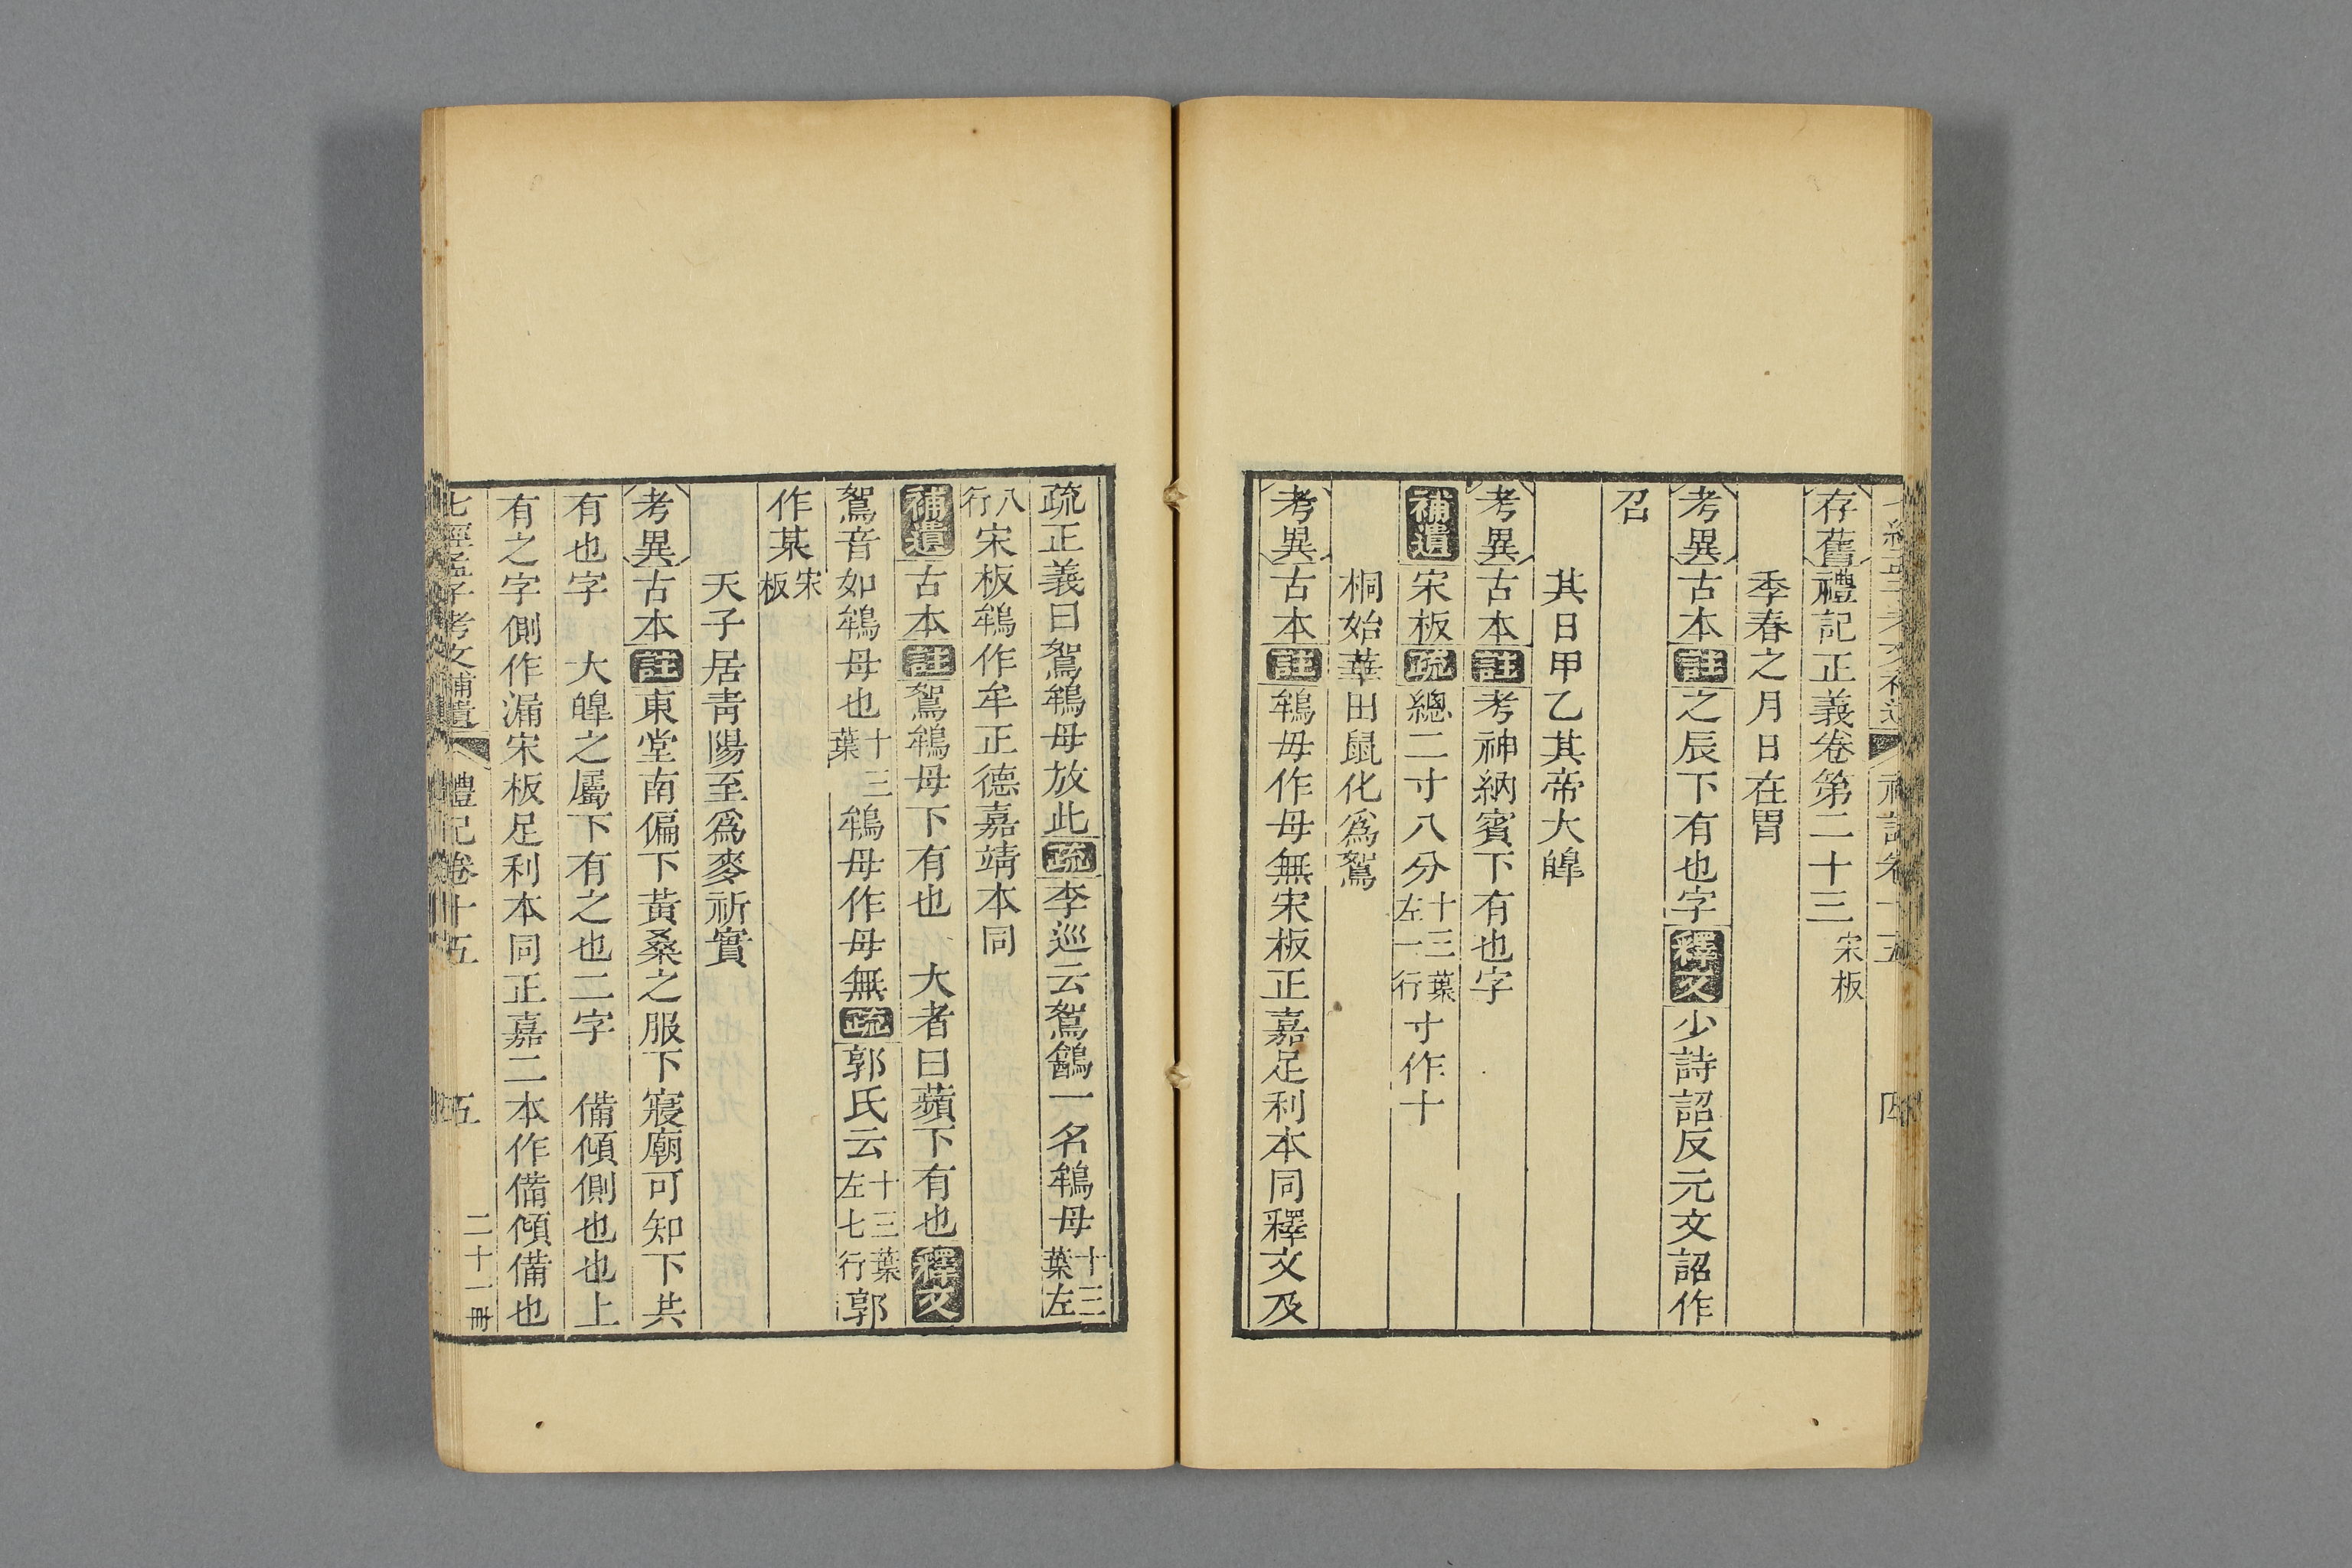 七經孟子考文補遺 禮記卷十五 四
存舊禮記正義卷第二十三宋板
季春之月日在胃
考異古本註之辰下有也字釋文少詩詔反元文詔作
召
其日甲乙其帝大皡
考異古本註考神納賓下有也字
補遺宋板疏總二寸八分十三葉左一行寸作十
桐始華田鼠化爲鴽
考異古本註鴾毋作母無宋板正嘉足利本同釋文及
疏正義曰鴽鴾母放此疏李巡云鴽鶕一名鴾母十三葉左
八行宋板鴾作牟正德嘉靖本同
補遺古本註鴽鴾母下有也 大者曰蘋下有也釋文
鴽音如鴾母也十三葉鴾毋作毋無疏郭氏云十三葉左七行郭
作某宋板
天子居靑陽至爲麥祈實
考異古本註東堂南偏下黃桑之服下寢廟可知下共
有也字 大皡之屬下有之也二字 備傾側也也上
有之字側作漏宋板足利本同正嘉二本作備傾備也
七經孟子考文補遺 禮記卷十五 五 二十一